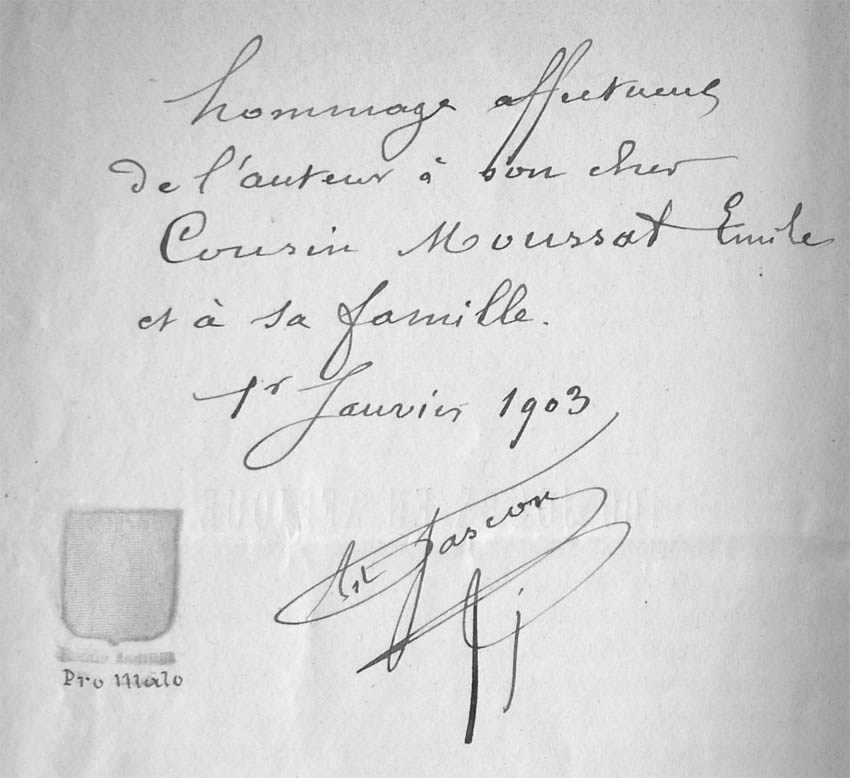 hommage affectueux
de l'auteur à son cher
Cousin Moussat Emile
et à sa famille.
1r Janvier 1903
EN AFRIQUE
Gascon
Pro Malo